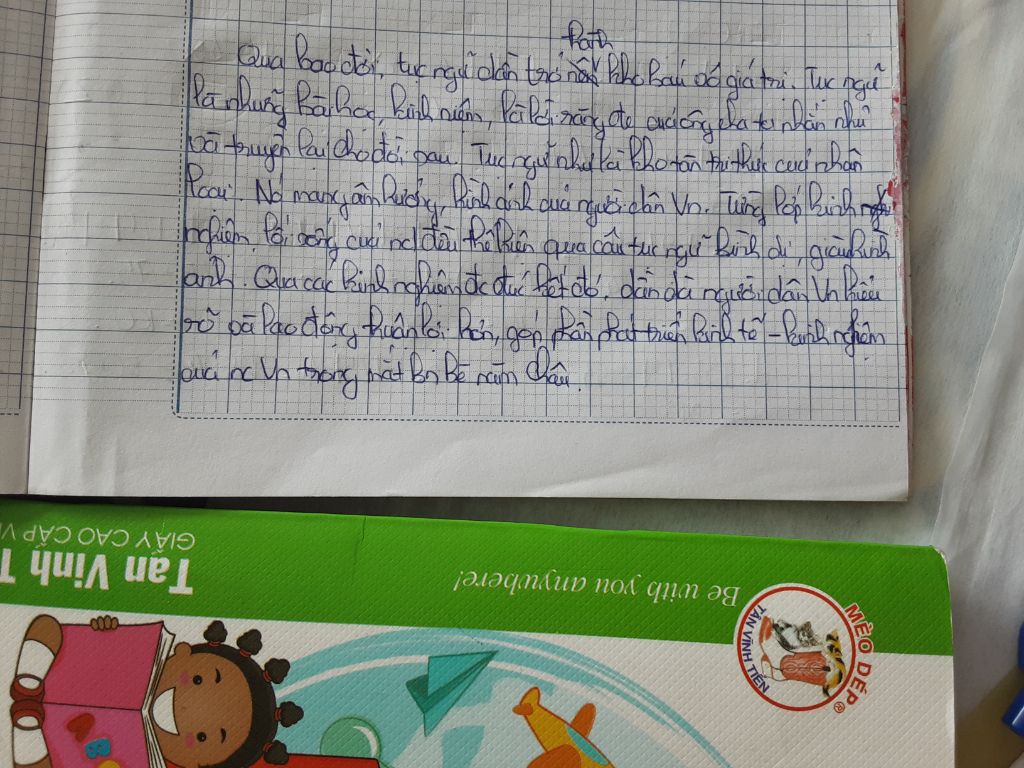 thành
Qua bao đời, tục ngữ dần trở kho báu có giá trị. Tục ngữ
là những bài học, kinh niệm, là lời răng đe của ông cha ta nhắn nhủ
và truyền lại cho đời sau. Tục ngữ như là kho tàn tri thức của nhân
loại. Nó mang âm hưởng, hình ảnh của người dân Vn. Từng lớp kinh
nghiệm, lối sống của nd đều thể hiện qua câu tục ngữ bình dị, giàu hình
ảnh. Qua các kinh nghiệm đc đúc kết đó, dần dà người dân Vn hiểu
rõ và lao động thuận lợi hơn, góp phần phát triển kinh tế - kinh nghiệm
của nc Vn trong mắt bn bè năm châu.
Tân Vĩnh T
GIẤY CAO CẤP V
Be with you anywhere!
MÈO DẸP ®
TÂN VĨNH TIẾN
A
B